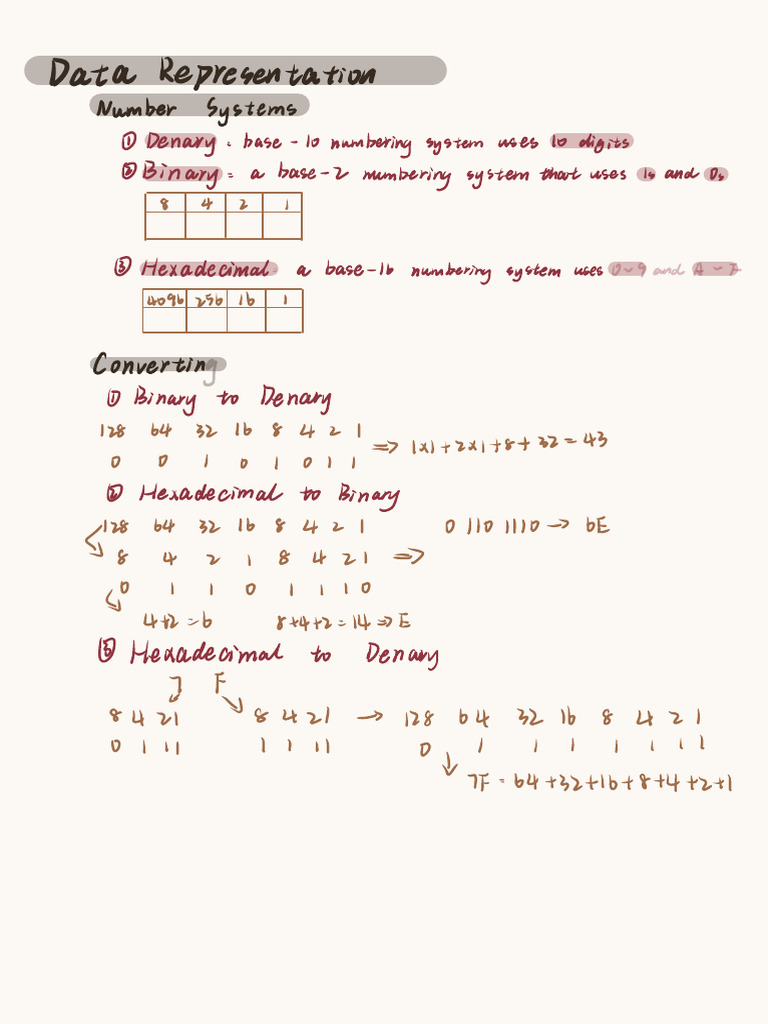 Data Representation
Number Systems
① Denary : base-10 numbering system uses 10 digits
② Binary : a base-2 numbering system that uses 1s and 0s
8 4 2 1
③ Hexadecimal : a base-16 numbering system uses 0~9 and A~F
4096 256 16 1
Converting
① Binary to Denary
128 64 32 16 8 4 2 1
0 0 1 0 1 0 1 1 => 1x1+2x1+8+32=43
② Hexadecimal to Binary
128 64 32 16 8 4 2 1 0 110 1110 → 6E
8 4 2 1 8 4 2 1 =>
0 1 1 0 1 1 1 0
4+2=6 8+4+2=14=>E
③ Hexadecimal to Denary
7 F
8 4 2 1 8 4 2 1 → 128 64 32 16 8 4 2 1
0 1 1 1 1 1 1 1 0 1 1 1 1 1 1 1
7F = 64+32+16+8+4+2+1